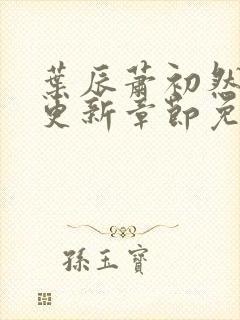 葉辰蕭初然
更新章節免
孫玉寶